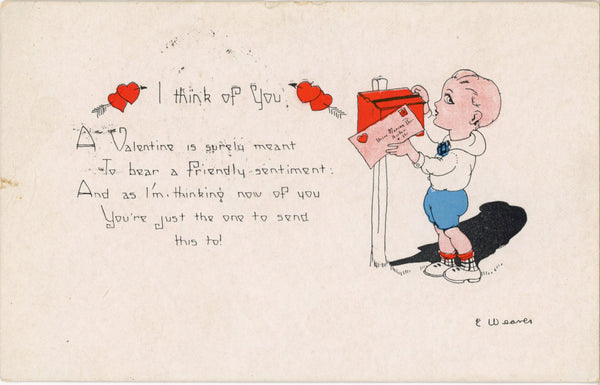 I think of You.
A Valentine is surely meant
To bear a friendly sentiment:
And as I'm thinking now of you
You're just the one to send
this to!
E Weaver